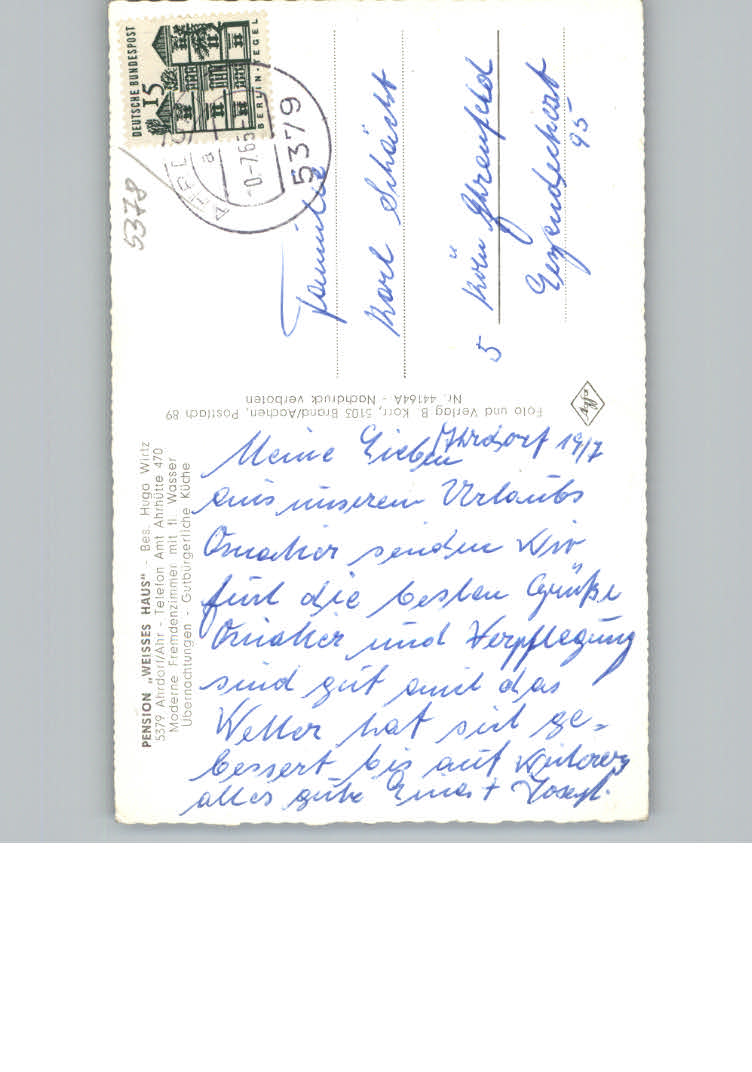 PENSION „WEISSES HAUS" - Bes. Hugo Wirtz
5379 Ahrdorf/Ahr - Telefon Amt Ahrhütte 470
Moderne Fremdenzimmer mit fl. Wasser
Übernachtungen - Gutbürgerliche Küche
Ahrdorf 19/7
Meine Lieben
aus unserem Urlaubs
senden Wir
die besten Grüße
und Verpflegung
sind gut das
Wetter hat sich ge=
bessert bis auf
alles gute + Josef.
Foto und Verlag B. Korr, 5103 Brand/Aachen, Postfach 89
Nr. 44164A - Nachdruck verboten
DEUTSCHE BUNDESPOST
15
BERLIN-TEGEL
5379
a
5378
Familie
Karl Schächt
5 Köln Ehrenfeld
95